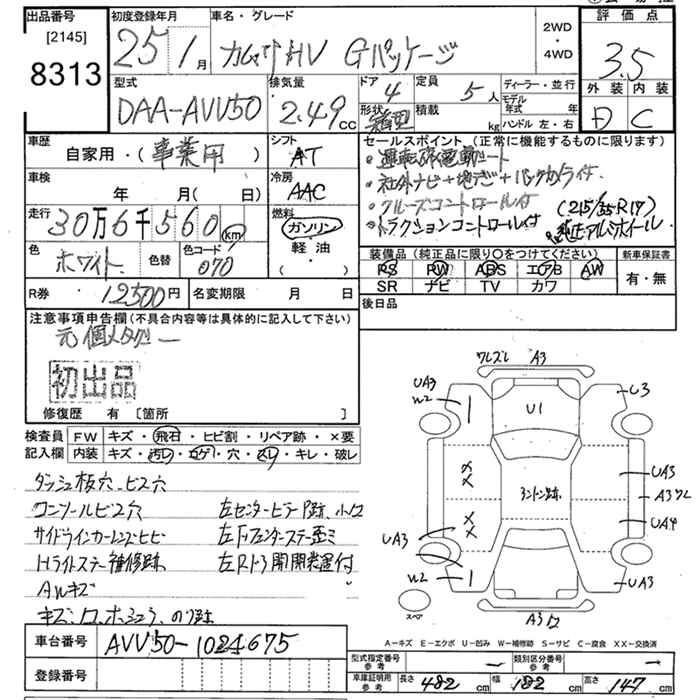 出品番号 初度登録年月 車名・グレード 2WD・4WD 評価点
[2145]
8313
25年1月 カムリHV Gパッケージ 3.5
型式 排気量 ドア 定員 ディーラー・並行 外装 内装
DAA-AVV50 2.49cc 4 5人 モデル年式 年 D C
形状 積載 kg ハンドル 左・右
車歴 シフト セールスポイント (正常に機能するものに限ります)
自家用・(事業用) AT ・運転席電動シート
車検 冷房 ・社外ナビ+地デジ+バックカメラ付
年 月( 日) AAC ・クルーズコントロール付 (215/55R17)
走行 燃料 ・トラクションコントロール付 純正アルミホイール
30万6千560km ガソリン・軽油・( )
色 色替 色コード 装備品 (純正品に限り○をつけてください) 新車保証書
ホワイト 070 PS PW ABS エアB AW 有・無
SR ナビ TV カワ
R券 12500円 名変期限 月 日 後日品
注意事項申告欄 (不具合内容等は具体的に記入して下さい)
元個人タクシー
初出品
修復歴 有 [箇所 ]
検査員記入欄 FW キズ・飛石・ヒビ割・リペア跡・×要
内装 キズ・汚れ・コゲ・穴・スレ・キレ・破レ
ダッシュ板穴、ビス穴
コンソールビス穴 左センターピラーP跡、小凹
サイドウィンカーレンズヒビ 左Fフェンダーステー歪ミ
Hライトステー補修跡 左Rドア自動開閉装置付
AWキズ
ワレズレ A3
UA3
W2 U1 U3
UA3
アンドン跡 A3ワレ
UA3 UA4
W2 UA3
スペア A3凹
車台番号 AVV50-1024675
A-キズ E-エクボ U-凹み W-補修跡 S-サビ C-腐食 XX-交換済
登録番号
型式指定番号参考 － 類別区分番号参考 －
車庫証明用参考 長さ 482cm 幅 182cm 高さ 147cm